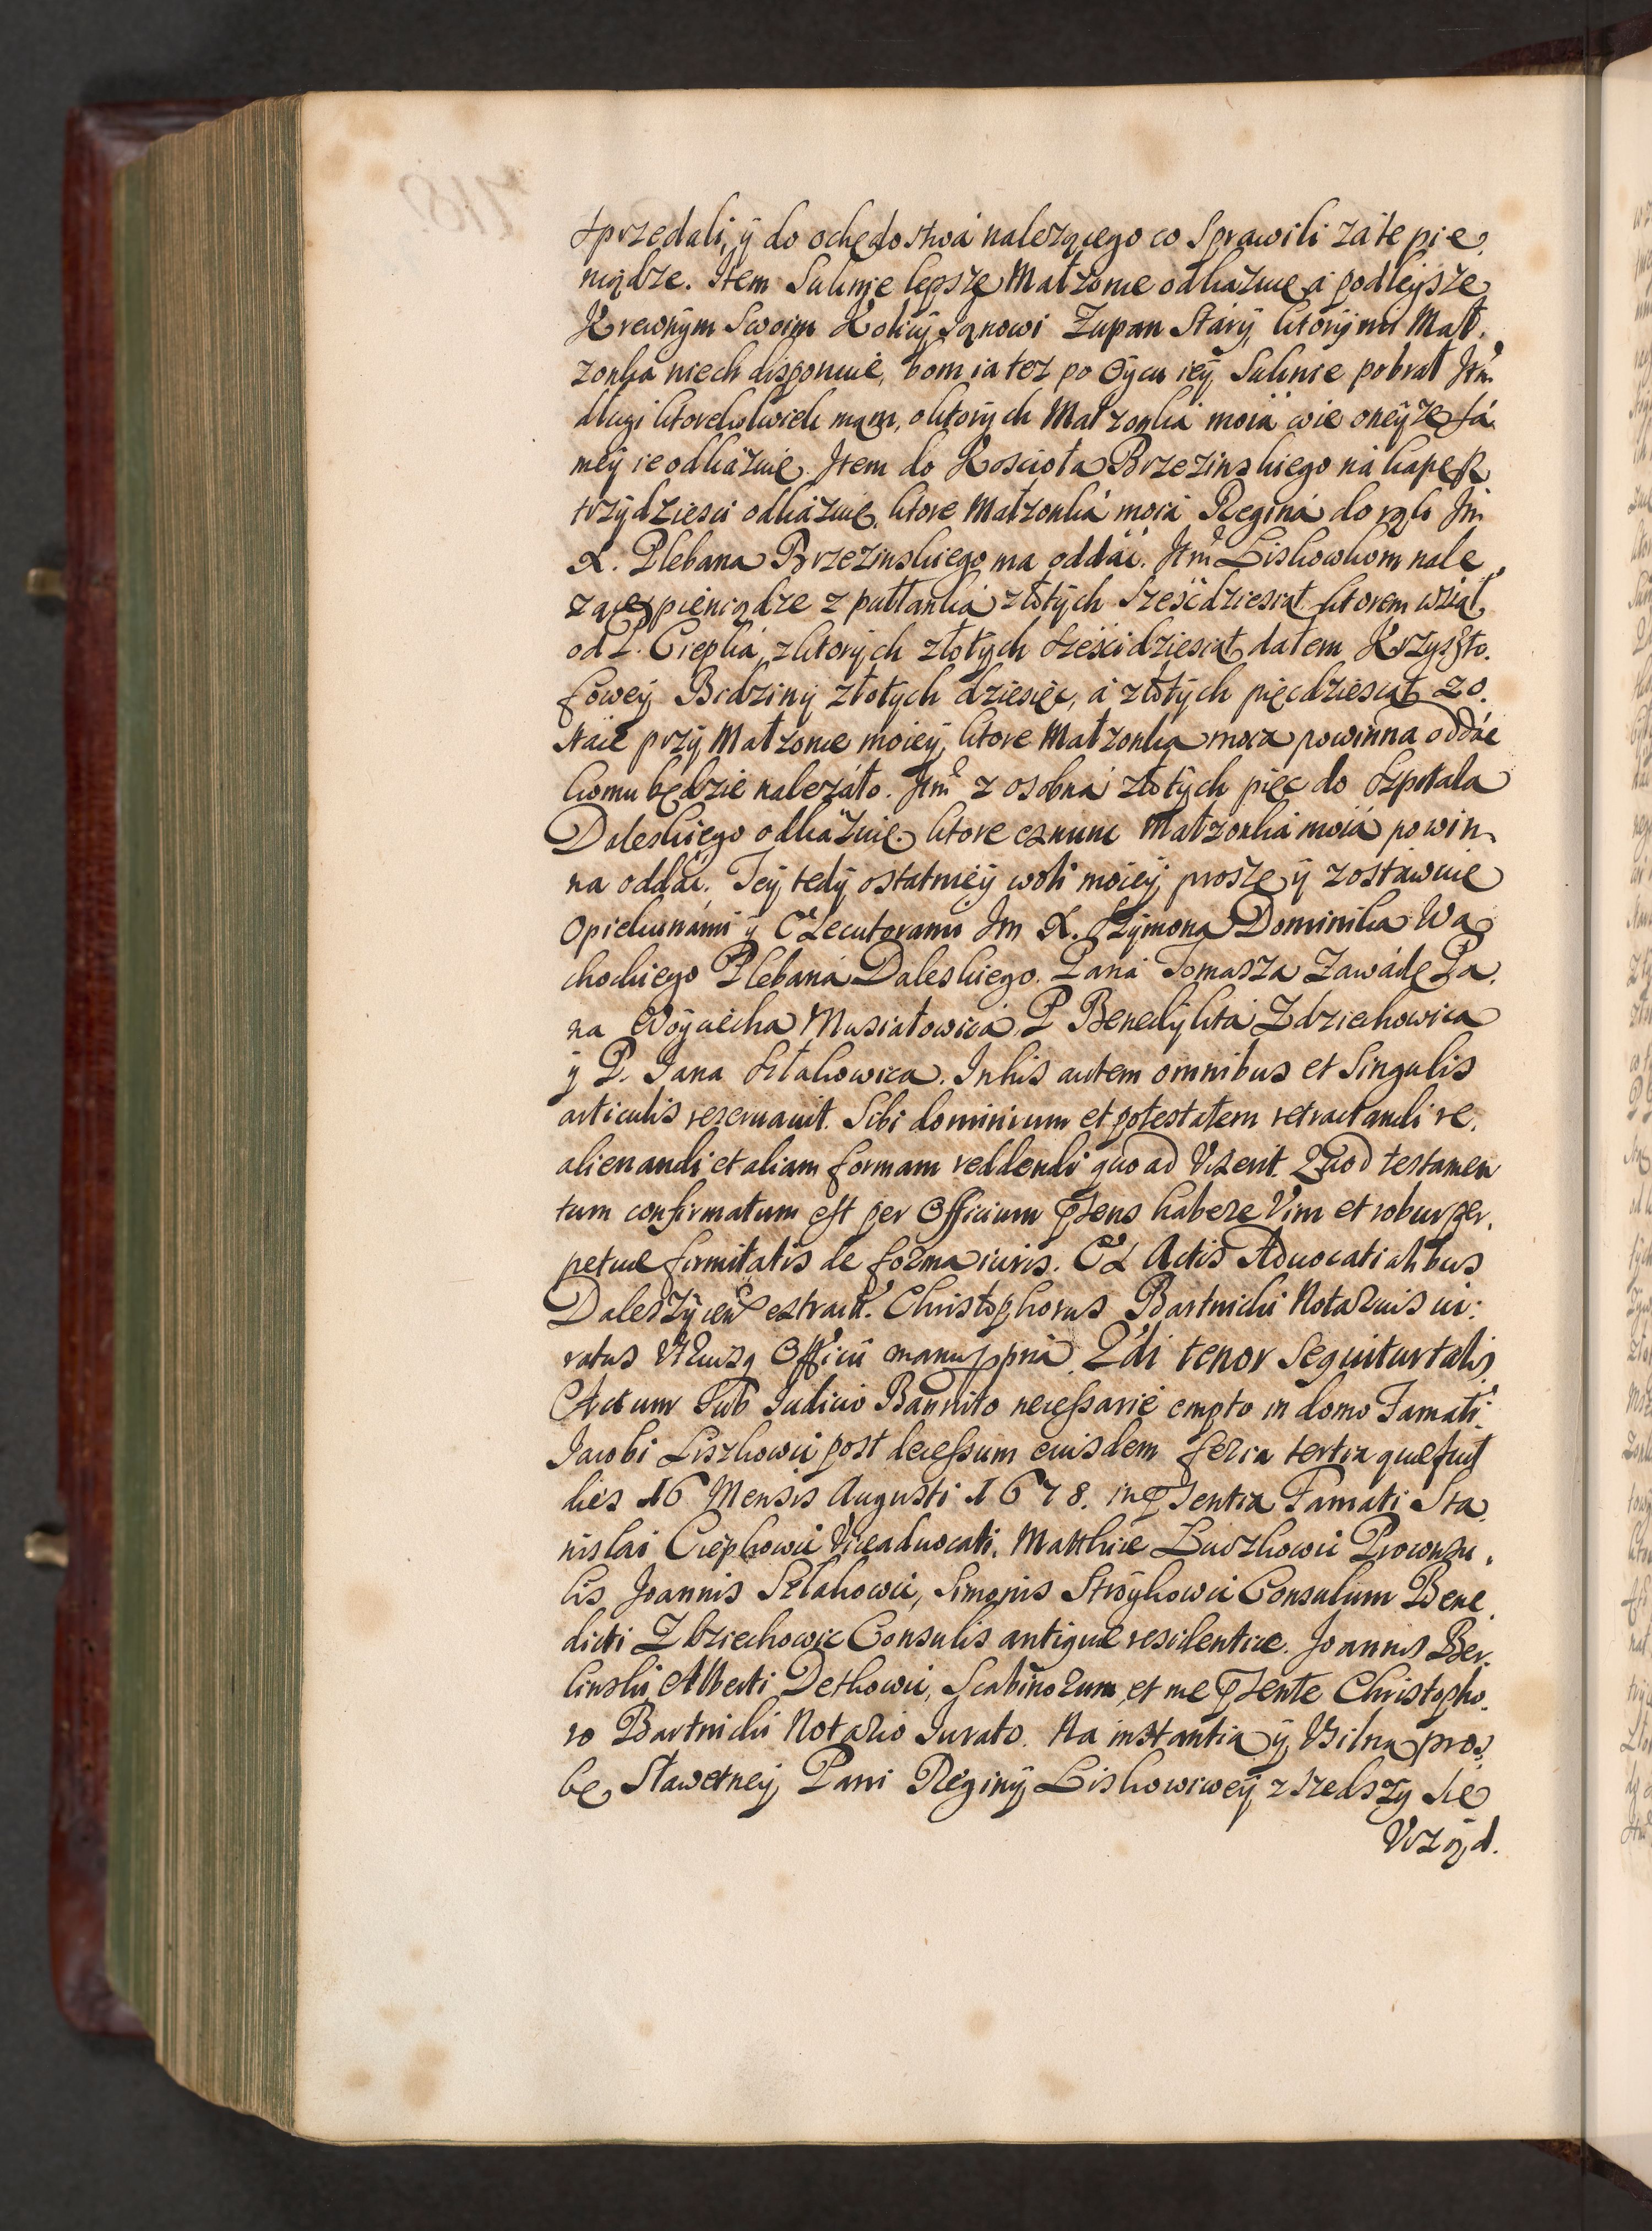 sprzedali, ÿ do ochędostwá nalezącego co Sprawili zá te pie
niądze. Item Suknie lepsze Małzonce odkazuię á podleysze
Krewnÿm Swoim Janowi Zupan Starÿ, ktorÿmi Mał
zonka niech disponuie, bom ia tez po Oÿcu ieÿ Suknie pobrał Itm
długi ktorekolwiek mam, o ktorÿch Małzonká moiá wie oneÿze sá
meÿ ie odkázuię. Item do Kosciołá Brzezinskiego ná kape
trzÿdziesci odkázuię, ktore Małzonká moiá Reginá do rąk Jm
X. Plebana Brzezinskiego ma oddáć. Itm Liskowkom nale
zące pieniądze złotÿch szesćdziesiąt ktorem wziął
od P. Ciepká, z ktorÿch złotÿch sześćidziesiąt dałem Krzyszto
foweÿ złotÿch dziesięć, á złotÿch pięcdziesiąt zo
staie przÿ Małzonce moieÿ, ktore Małzonka moia powinna oddáć
komu będzie nalezáło. Itm z osobná złotÿch pięc do Szpitala
Daleskiego odkázuię ktore Małzonká moiá powin
na oddáć. Teÿ tedÿ ostatnieÿ woli moieÿ, proszę ÿ zostawuię
Opiekunámi ÿ Executorami Jm X. Szÿmona Dominika Wą
chockiego Plebaná Daleskiego. Paná Tomasza Zawádę Pa
na Woÿciechá Musiałowica P Benedÿktá Zdziechowica
ÿ P. Jana Szlakowica. In his autem omnibus et Singulis
articulis reservauit Sibi dominium et potestatem retractandi re
alienandi et aliam formam reddendi quoad Vixerit. Quod testamen
tum confirmatum est per Officium pſens habere Vim et robur per
petuæ firmitatis de forma iuris. Ex Actis Aduocatialibus
Daleszÿcen extract. Christophorus Bartnicki Notarius iu
ratus Vtriusq Officii manu ppria. Qdi tenor Sequitur talis
Actum Sub Iudicio Bannito necessarie empto in domo Famati
Jacobi Liszkowic post decessum eiusdem feria tertia quæ fuit
dies 16 Mensis Augusti 1678. in pſentia Famati Sta
nislai Ciepkowic Viceaduocati. Matthiæ Proconsu
lis, Joannis Szlakowic, Simonis Stroÿkowic Consulum Bene
dicti Zdziechowic Consulis antiquæ residentiæ. Joannis Ber
linski Alberti Detkowic, Scabinorum, et me pſente Christopho
ro Bartnicki Notario Iurato. Na instantią ÿ Vsilną proz
bę Sławetneÿ Pani Reginÿ Liskowiweÿ zszedszy się
Vrząd.